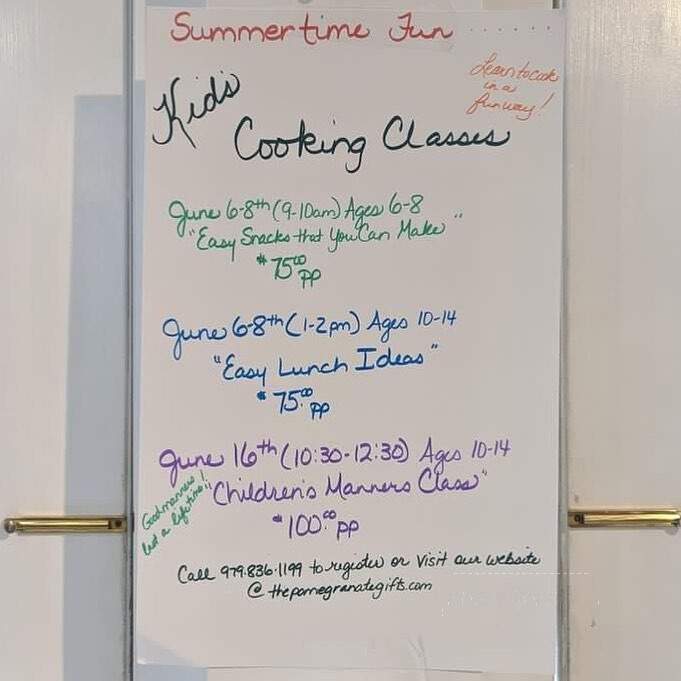 Summertime Fun ......
Learn to cook
in a
fun way!
Kid's
Cooking Classes
June 6-8th (9-10am) Ages 6-8
"Easy Snacks that You Can Make"
$75.00 pp
June 6-8th (1-2pm) Ages 10-14
"Easy Lunch Ideas"
$75.00 pp
June 16th (10:30-12:30) Ages 10-14
"Children's Manners Class"
Good manners
last a lifetime!
$100.00 pp
Call 979.836.1199 to register or visit our website
@ thepomegranategifts.com